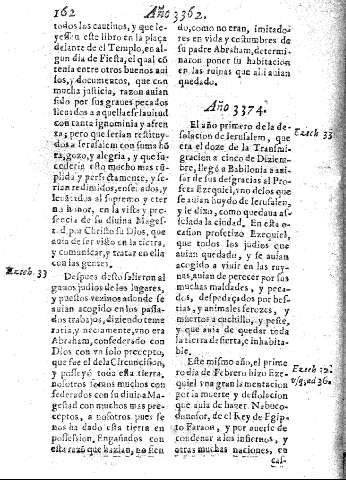 162
Año 3362.
todos los cautivos, y que le-
yessen este libro en la plaça
delante de el Templo, en al-
gun dia de Fiesta, el qual cõ
tenia entre otros buenos avi-
sos, y documentos, que con
mucha justicia, razon auian
sido por sus graues pecados
lleuados a aquella esclauitud
con tanta ignominia y afren-
ta; pero que serian restituy-
dos a Ierusalem con suma hõ
ra, gozo, y alegria, y que su-
cederia esto mucho mas cũ-
plida y perfectamente, y se-
rian redimidos, enseñados, y
leuãtados al supremo y eter
no honor, en la vista y pre-
sencia de su diuina Mages-
tad, por Christo su Dios, que
auia de ser visto en la tierra,
y comunicar, y tratar en ella
con las gentes.
Ezech. 33
Despues desto salieron al
gunos judios de los lugares,
y puestos vezinos adonde se
auian acogido en los passa-
dos trabajos, diziendo teme
raria, y neciamente, vno era
Abraham, confederado con
Dios con vn solo precepto,
que fue el de la Circuncision,
y posseyò toda esta tierra,
nosotros somos muchos con
federados con su diuina Ma-
gestad con muchos mas pre-
ceptos, a nosotros pues se
nos ha dado esta tierra en
possession. Engañados con
esta razõ que hazian, no sien
do, como no eran, imitado-
res en vida y costumbres de
su padre Abraham, determi-
naron poner su habitacion
en las ruinas que alli auian
quedado.
Año 3374.
El año primero de la de-
solacion de Ierusalem, que
era el doze de la Transmi-
gracion a cinco de Diziem-
bre, llegò a Babilonia a aui-
sar de sus desgracias al Profe
ta Ezequiel, vno de los que
se auian huydo de Ierusalem,
y le dixo, como quedaua as-
solada la ciudad. En esta o-
casion profetizò Ezequiel,
que todos los judios que
auian quedado, y se auian
acogido a viuir en las ruy-
nas, auian de perecer por sus
muchas maldades, y peca-
dos, despedaçados por bes-
tias, y animales ferozes, y
muertos a cuchillo, y peste,
y que auia de quedar toda
la tierra desierta, e inhabita-
ble.
Ezech 33
Este mismo año, el prime
ro dia de Febrero hizo Eze-
quiel vna gran lamentacion
por la muerte y dessolacion
que auia de hazer Nabuco-
donosor, de el Rey de Egip-
to Faraon, y por auerse de
condenar a los infiernos, y
otras muchas naciones, en
Ezech 32.
vsq; ad 36.
cas-